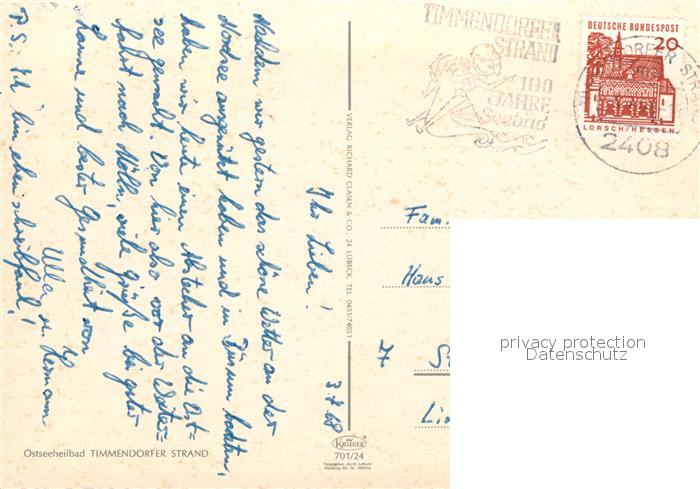 Ihr Lieben!
3.7.68
Nachdem wir gestern das schöne Wetter an der
Nordsee ausgenützt haben und in Büsum badeten,
haben wir heute einen Abstecher an die Ost-
see gemacht. Von hier also vor der Weiter-
fahrt nach Mölln, viele Grüße bei guter
Laune und bester Gesundheit von
Ulla u. Hermann
P.S. Ich bin eben schreibfaul!
Ostseeheilbad TIMMENDORFER STRAND
VERLAG RICHARD CLASEN & CO., 24 LÜBECK, TEL. 0451/74051
KRÜGER
701/24
TIMMENDORFER
STRAND
100
JAHRE
Seebad
DEUTSCHE BUNDESPOST
20
LORSCH/HESSEN
2408
Fam.
Hans
7
Lin
privacy protection
Datenschutz